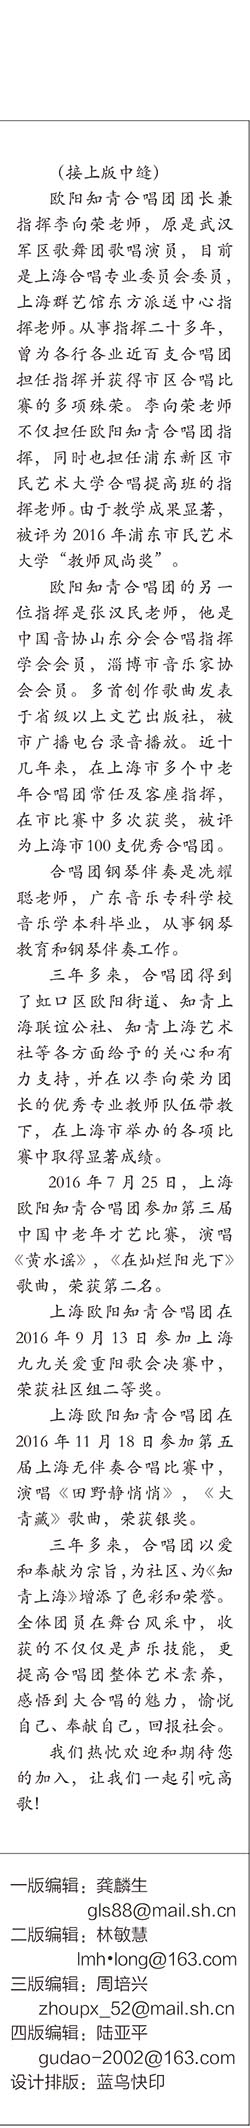 （接上版中缝）
欧阳知青合唱团团长兼
指挥李向荣老师，原是武汉
军区歌舞团歌唱演员，目前
是上海合唱专业委员会委员，
上海群艺馆东方派送中心指
挥老师。从事指挥二十多年，
曾为各行各业近百支合唱团
担任指挥并获得市区合唱比
赛的多项殊荣。李向荣老师
不仅担任欧阳知青合唱团指
挥，同时也担任浦东新区市
民艺术大学合唱提高班的指
挥老师。由于教学成果显著，
被评为2016年浦东市民艺术
大学“教师风尚奖”。
欧阳知青合唱团的另一
位指挥是张汉民老师，他是
中国音协山东分会合唱指挥
学会会员，淄博市音乐家协
会会员。多首创作歌曲发表
于省级以上文艺出版社，被
市广播电台录音播放。近十
几年来，在上海市多个中老
年合唱团常任及客座指挥，
在市比赛中多次获奖，被评
为上海市100支优秀合唱团。
合唱团钢琴伴奏是冼耀
聪老师，广东音乐专科学校
音乐学本科毕业，从事钢琴
教育和钢琴伴奏工作。
三年多来，合唱团得到
了虹口区欧阳街道、知青上
海联谊公社、知青上海艺术
社等各方面给予的关心和有
力支持，并在以李向荣为团
长的优秀专业教师队伍带教
下，在上海市举办的各项比
赛中取得显著成绩。
2016年7月25日，上海
欧阳知青合唱团参加第三届
中国中老年才艺比赛，演唱
《黄水谣》，《在灿烂阳光下》
歌曲，荣获第二名。
上海欧阳知青合唱团在
2016年9月13日参加上海
九九关爱重阳歌会决赛中，
荣获社区组二等奖。
上海欧阳知青合唱团在
2016年11月18日参加第五
届上海无伴奏合唱比赛中，
演唱《田野静悄悄》，《大
青藏》歌曲，荣获银奖。
三年多来，合唱团以爱
和奉献为宗旨，为社区、为《知
青上海》增添了色彩和荣誉。
全体团员在舞台风采中，收
获的不仅仅是声乐技能，更
提高合唱团整体艺术素养，
感悟到大合唱的魅力，愉悦
自己、奉献自己，回报社会。
我们热忱欢迎和期待您
的加入，让我们一起引吭高
歌！
一版编辑：龚麟生
gls88@mail.sh.cn
二版编辑：林敏慧
lmh•long@163.com
三版编辑：周培兴
zhoupx_52@mail.sh.cn
四版编辑：陆亚平
gudao-2002@163.com
设计排版：蓝鸟快印